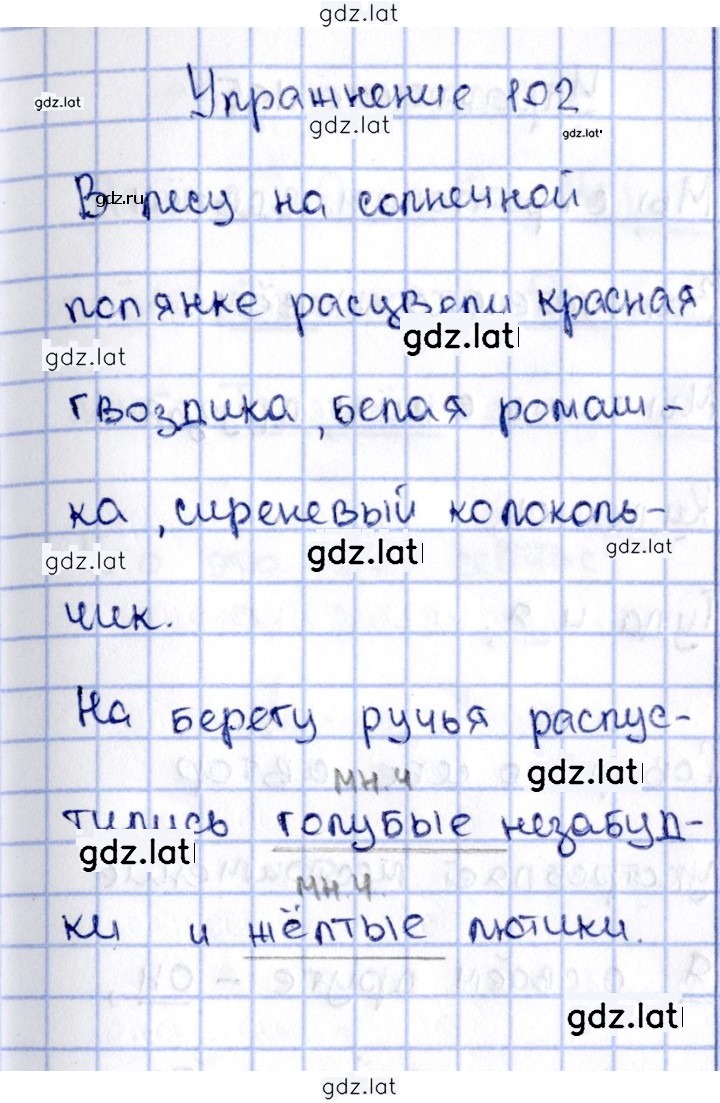 gdz.lat
gdz.lat
Упражнение 102
gdz.lat
gdz.lat
В лесу на солнечной
gdz.ru
полянке расцвели красная
gdz.lat
gdz.lat
гвоздика, белая ромаш-
ка, сиреневый колоколь-
gdz.lat
gdz.lat
gdz.lat
чик.
На берегу ручья распус-
мн.ч
gdz.lat
тились голубые незабуд-
gdz.lat
мн.ч.
ки и жёлтые лютики.
gdz.lat
gdz.lat